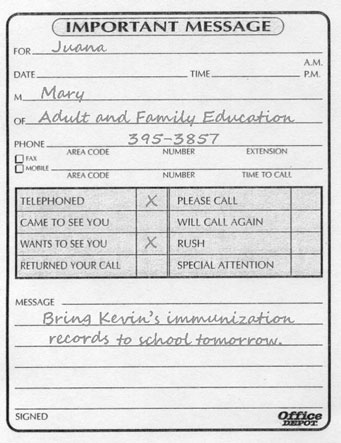 IMPORTANT MESSAGE
FOR Juana
A.M.
DATE TIME P.M.
M Mary
OF Adult and Family Education
PHONE 395-3857
FAX AREA CODE NUMBER EXTENSION
MOBILE AREA CODE NUMBER TIME TO CALL
TELEPHONED X PLEASE CALL
CAME TO SEE YOU WILL CALL AGAIN
WANTS TO SEE YOU X RUSH
RETURNED YOUR CALL SPECIAL ATTENTION
MESSAGE
Bring Kevin's immunization
records to school tomorrow.
SIGNED Office DEPOT